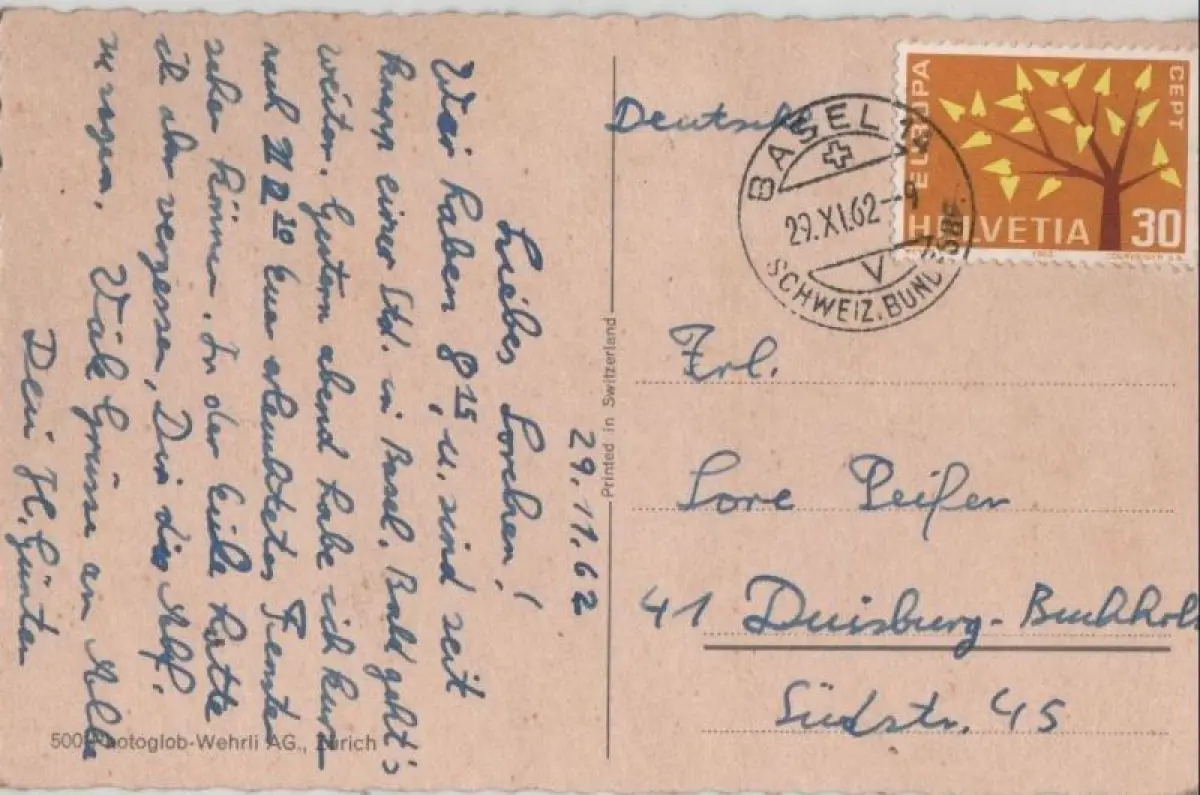 29.11.62
Liebes Lorchen!
Wir haben 8 15, u. sind seit
knapp einer Std. in Basel. Bald geht's
weiter. Gestern abend habe ich kurz
nach Euer erleuchtetes Fenster
sehen können. In der Eile hatte
ich aber vergessen, Dir
zu sagen. Viele Grüsse an Alle
Dein H. Günter
500 Photoglob-Wehrli AG., Zürich
Printed in Switzerland
Deutschl
BASEL
29.XI.62--9
V
SCHWEIZ.BUND
EUROPA
CEPT
HELVETIA 30
Frl.
Lore Peifer
41 Duisburg-Buchholz
Südstr. 45